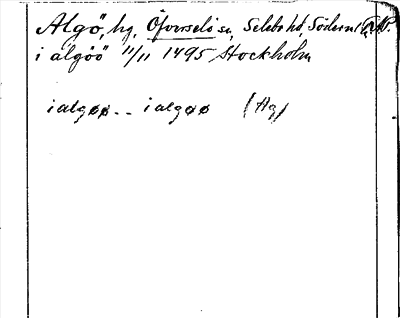 Algö, hg, Överselö sn, Selebo hd, Söderml.
i algöö 11/11 1495 Stockholm
i algøø - - i algøø (Ag)